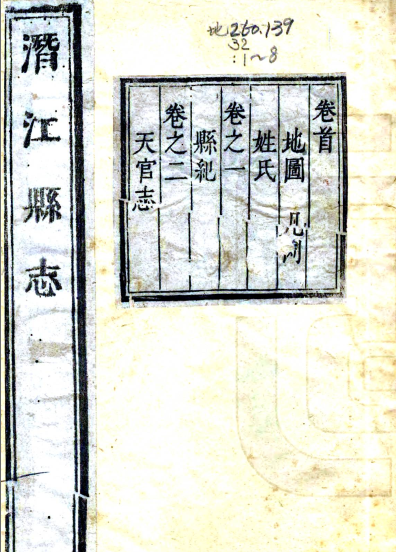 地260.139
32
:1~8
潛江縣志
卷首
地圖
姓氏
卷之一
縣紀
卷之二
天官志